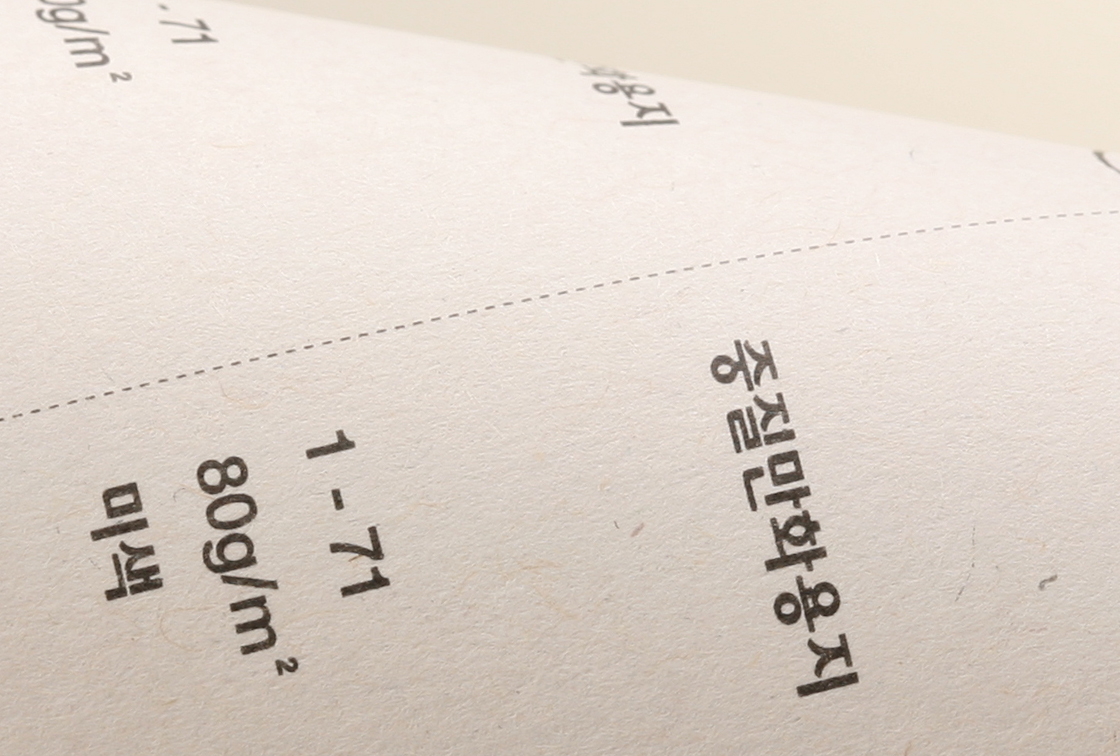 중질만화용지
1 - 71
80g/m²
미색
화용지
71
0g/m²